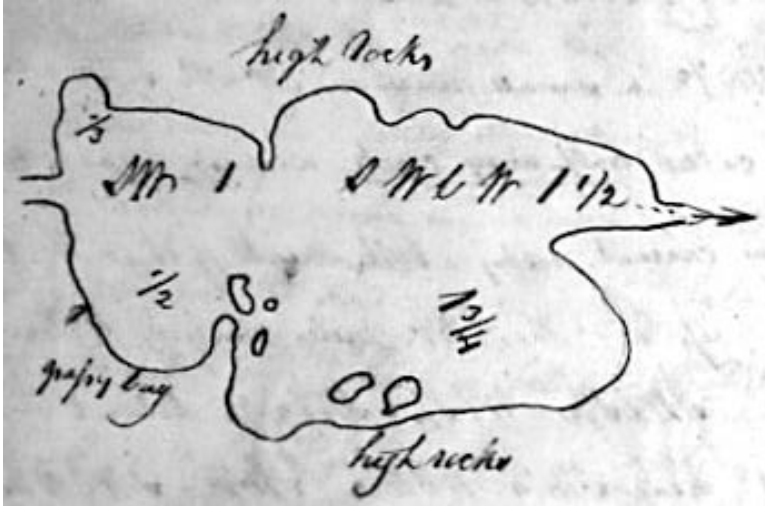 high rocks
1/3
SW 1
S W b W 1 1/2
1/2
grassy bay
high rocks